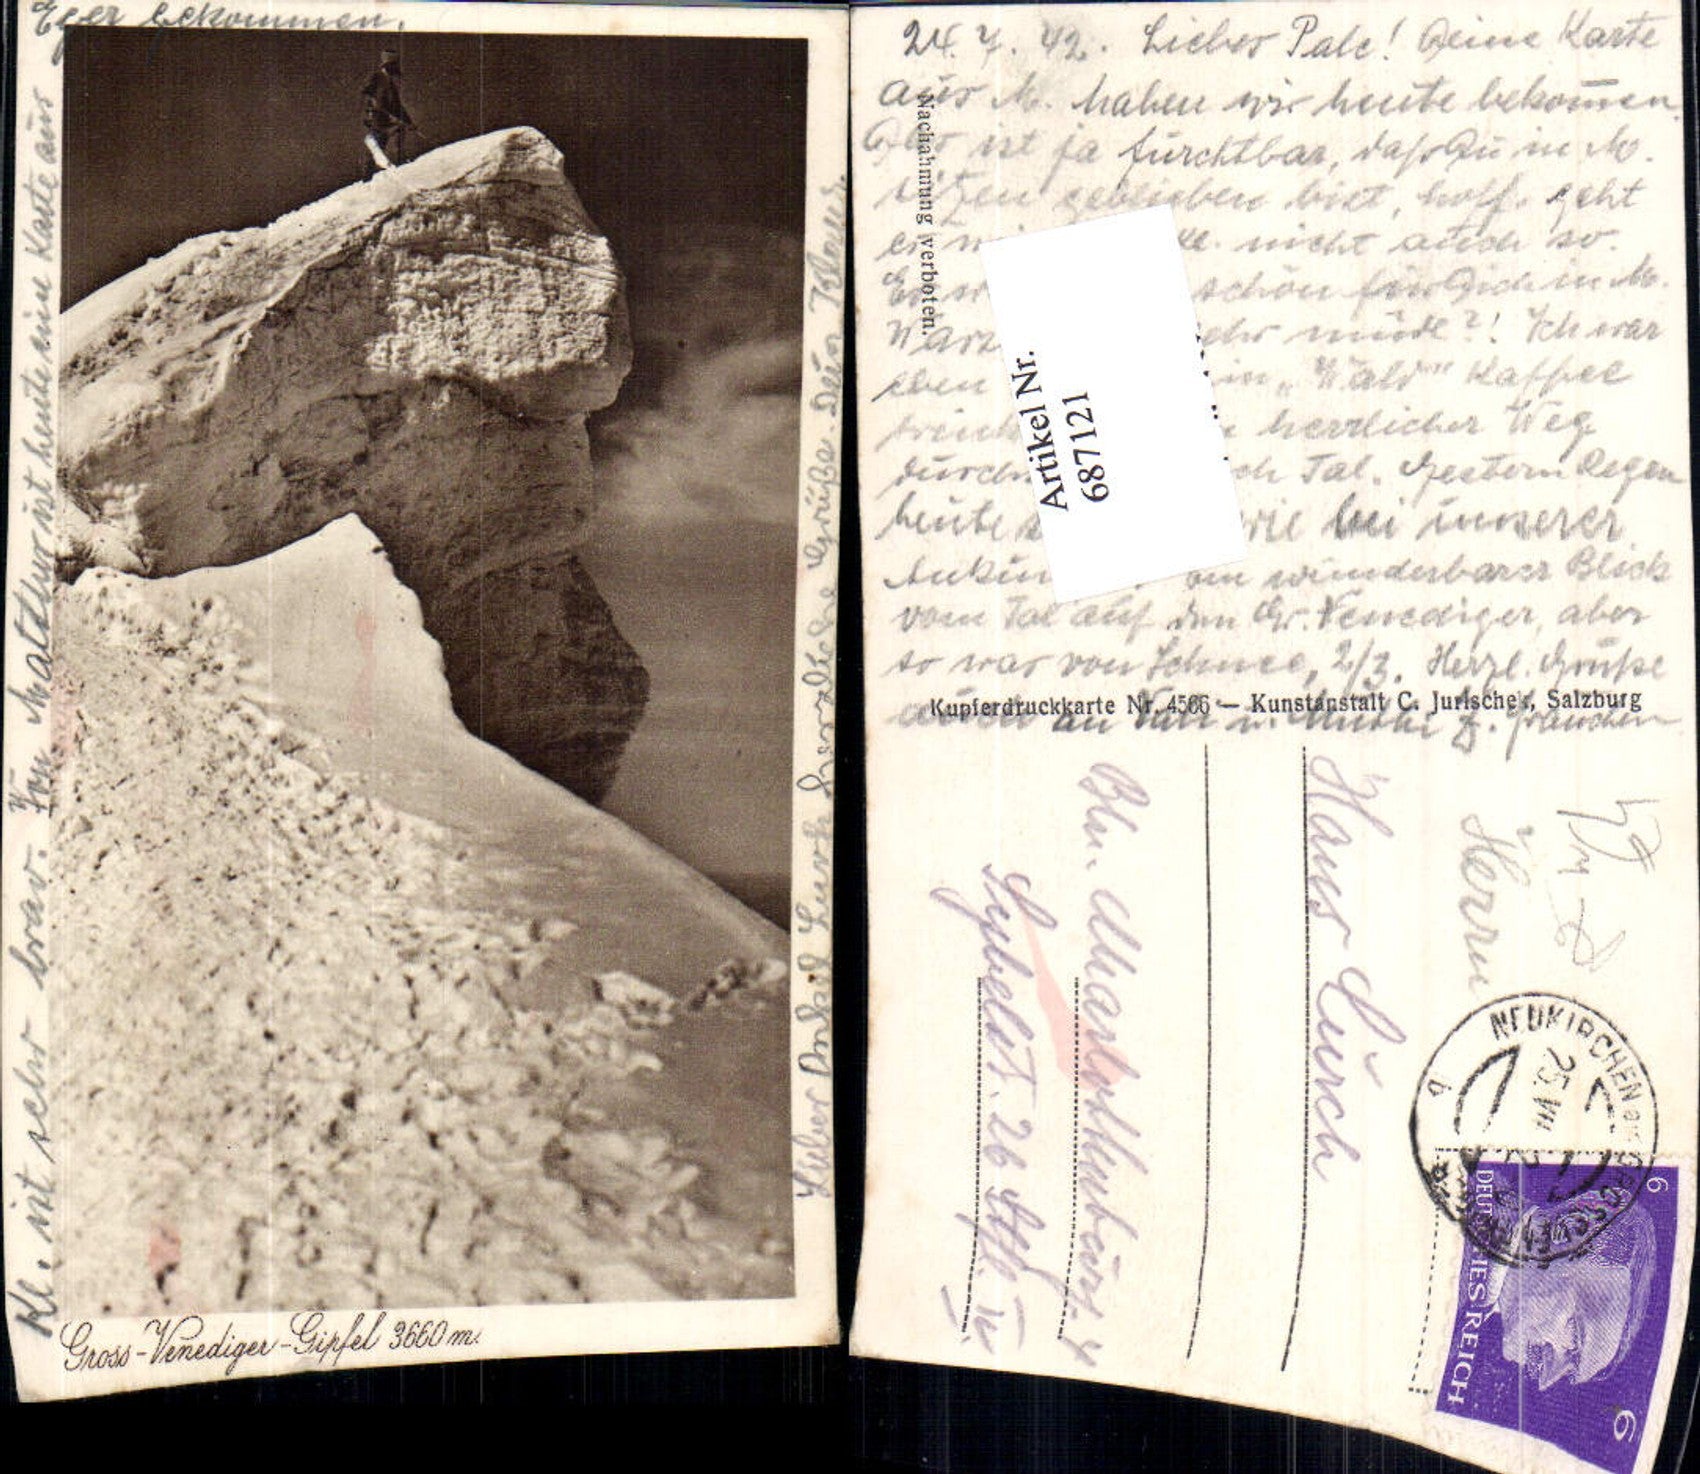 Eger bekommen.
Kl. ist sehr brav. Von Matthur ist heute eine Karte aus
Lieber Onkel Lurch herzliche Grüße. Dein Klaus.
Gross-Venediger-Gipfel 3660 m.
24. 7. 42. Liebes Pale! Deine Karte
aus M. haben wir heute bekommen.
Das ist ja furchtbar, daß Du in M.
sitzen geblieben bist, hoff. geht
es nicht auch so.
schön für Dich in M.
Warst müde?! Ich war
eben in "Wald" Kaffee
herrlicher Weg
durch Tal. Gestern Regen
heute wie bei unserer
ein wunderbarer Blick
vom Tal auf den Gr. Venediger, aber
so war von Schnee, 2/3. Herzl. Grüße
auch an Vati u. Mutti z. Frauchen
Nachahmung verboten.
Artikel Nr.
687121
Kupferdruckkarte Nr. 4566 — Kunstanstalt C. Jurischek, Salzburg
Herrn
Hans Lurch
Bln. Charlottenburg 4
Sybelstr. 26 Gtl. IV
NEUKIRCHEN am GROSSVENEDIGER
25. VII
a
DEUTSCHES REICH
6
6